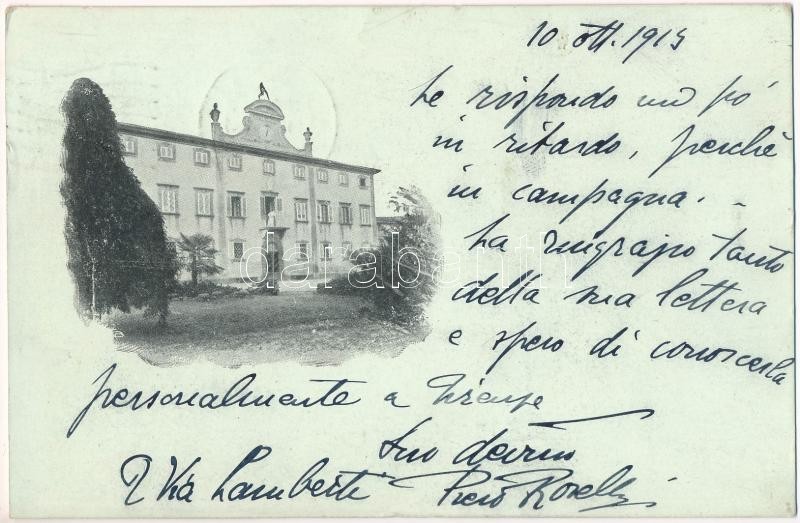 10 ott. 1915
Le rispondo un pó
in ritardo, perchè
in campagna. -
La ringrazio tanto
della sua lettera
e spero di conoscerla
personalmente a Firenze
Suo devmo
Piero Roselli
2 Via Lamberti
darabanth